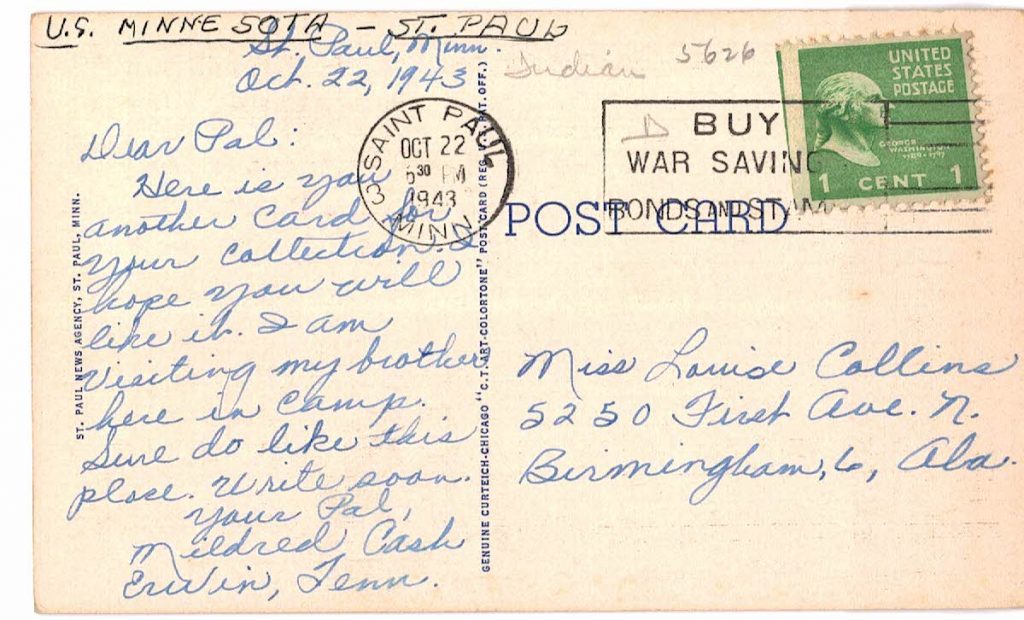 U.S. MINNESOTA - ST. PAUL
St. Paul, Minn.
Oct. 22, 1943
Dear Pal:
Here is you
another card for
your collection. I
hope you will
like it. I am
visiting my brother
here in camp.
Sure do like this
place. Write soon.
Your Pal,
Mildred Cash
Erwin, Tenn.
ST. PAUL NEWS AGENCY, ST. PAUL, MINN.
GENUINE CURTEICH-CHICAGO "C.T. ART-COLORTONE" POST CARD (REG. U.S. PAT. OFF.)
SAINT PAUL
3
OCT 22
30 PM
1943
MINN
Indian 5626
D
BUY
WAR SAVING
BONDS AND STAM
POST CARD
UNITED
STATES
POSTAGE
GEORGE
WASHINGTON
1789-1797
1 CENT 1
Miss Louise Collins
5250 First Ave. N.
Birmingham, 6, Ala.